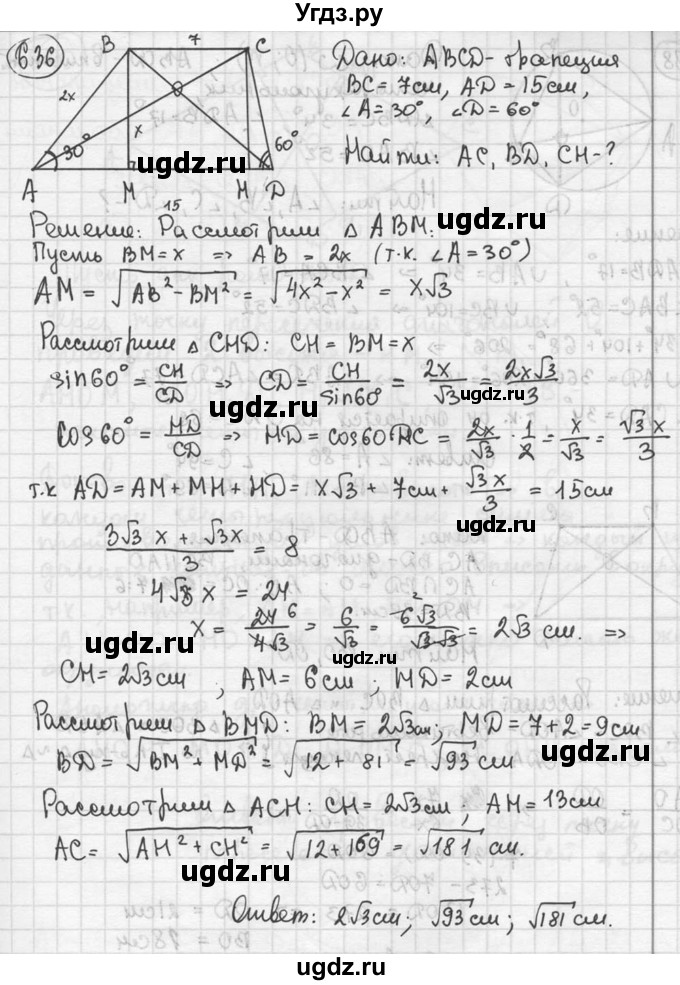 Угдз.ру
636
B 7 C
2x
x
30°
60°
A M H D
15
Дано: ABCD - трапеция
BC = 7см, AD = 15см,
∠A = 30°, ∠D = 60°
Найти: AC, BD, CH - ?
ugdz.ru
ugdz.ru
Решение: Рассмотрим Δ ABM:
ugdz.ru
Пусть BM = x => AB = 2x (т.к. ∠A = 30°)
AM = √(AB² - BM²) = √(4x² - x²) = x√3
ugdz.ru
Рассмотрим Δ CHD: CH = BM = x
sin60° = CH/CD => CD = CH/sin60° = 2x/√3 = 2x√3/3
ugdz.ru
ugdz.ru
cos60° = HD/CD => HD = cos60·HC = 2x/√3 · 1/2 = x/√3 = √3x/3
т.к AD = AM + MH + HD = x√3 + 7см + √3x/3 = 15см
ugdz.ru
(3√3 x + √3x)/3 = 8
4√3 x = 24
ugdz.ru
x = 24/4√3 = 6/√3 = 6√3/√3√3 = 2√3 см. =>
ugdz.ru
CH = 2√3см ; AM = 6см ; MD = 2см
ugdz.ru
Рассмотрим Δ BMD: BM = 2√3см; MD = 7+2 = 9см
BD = √(BM² + MD²) = √(12 + 81) = √93 см
ugdz.ru
Рассмотрим Δ ACH: CH = 2√3см ; AH = 13см
AC = √(AH² + CH²) = √(12 + 169) = √181 см.
ugdz.ru
Ответ: 2√3см; √93 см; √181 см.
ugdz.ru
ugdz.ru